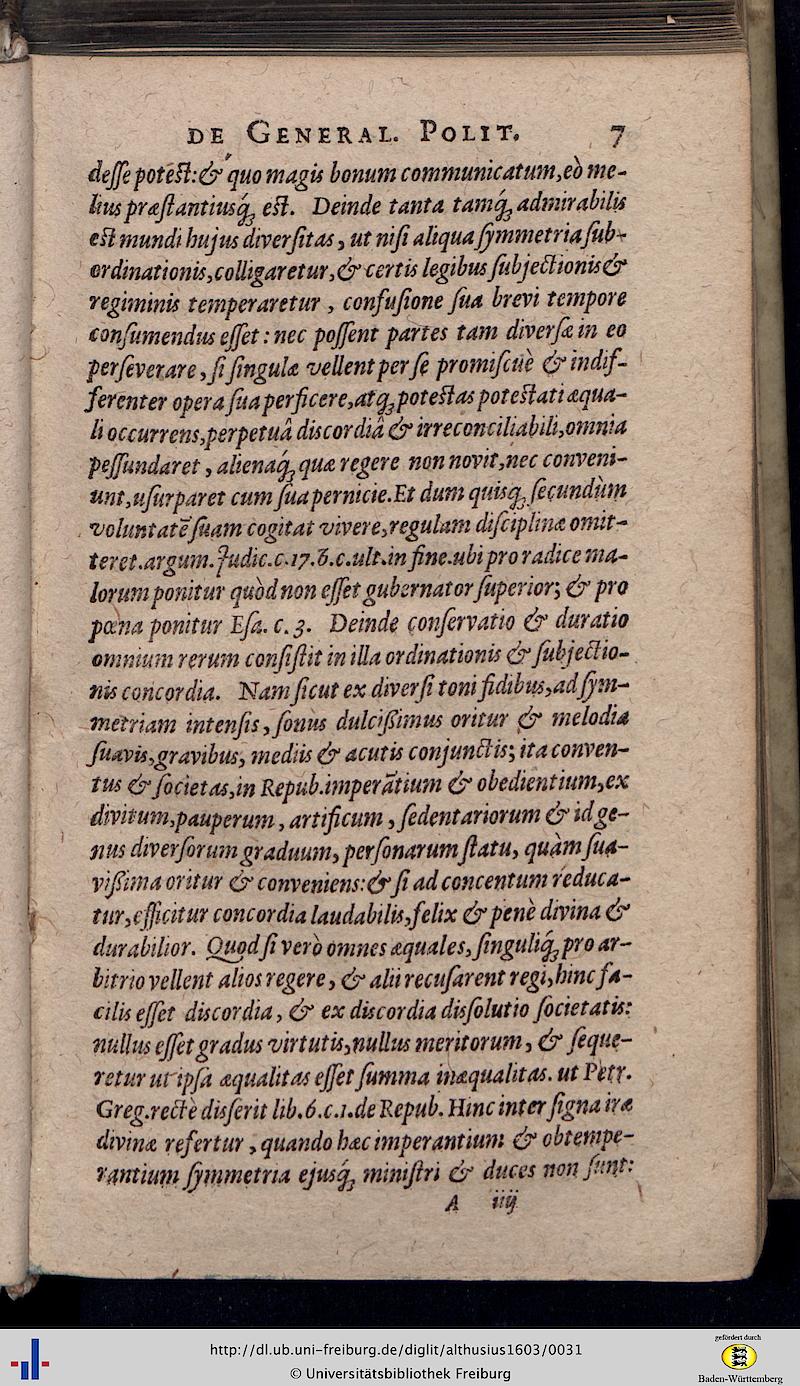 DE GENERAL. POLIT. 7
deſſe potest: & quo magis bonum communicatum, eò me-
lius præſtantiusq́; est. Deinde tanta tamq́; admirabilis
est mundi hujus diverſitas, ut niſi aliqua ſymmetria ſub-
ordinationis, colligaretur, & certis legibus ſubjectionis &
regiminis temperaretur, confuſione ſua brevi tempore
conſumendus eſſet: nec poſſent partes tam diverſæ in eo
perſeverare, ſi ſingulæ vellent per ſe promiſcuè & indif-
ferenter opera ſua perficere, atq; potestas potestati æqua-
li occurrens, perpetuâ discordiâ & irreconciliabili, omnia
peſſundaret, alienaq́; quæ regere non novit, nec conveni-
unt, uſurparet cum ſua pernicie. Et dum quisq; ſecundùm
voluntatē ſuam cogitat vivere, regulam diſciplinæ omit-
teret. argum. Judic. c. 17. & c. ult. in fine. ubi pro radice ma-
lorum ponitur quòd non eſſet gubernator ſuperior; & pro
pœna ponitur Eſa. c. 3. Deinde conſervatio & duratio
omnium rerum conſiſtit in illa ordinationis & ſubjectio-
nis concordia. Nam ſicut ex diverſi toni fidibus, ad ſym-
metriam intenſis, ſonus dulcißimus oritur & melodia
ſuavis, gravibus, mediis & acutis conjunctis; ita conven-
tus & ſocietas, in Repub. imperātium & obedientium, ex
divitum, pauperum, artificum, ſedentariorum & id ge-
nus diverſorum graduum, perſonarum ſtatu, quàm ſua-
vißima oritur & conveniens: & ſi ad concentum reduca-
tur, efficitur concordia laudabilis, felix & penè divina &
durabilior. Quod ſi verò omnes æquales, ſinguliq́; pro ar-
bitrio vellent alios regere, & alii recuſarent regi, hinc fa-
cilis eſſet discordia, & ex discordia disſolutio ſocietatis:
nullus eſſet gradus virtutis, nullus meritorum, & ſeque-
retur ut ipſa æqualitas eſſet ſumma inæqualitas. ut Petr.
Greg. rectè disſerit lib. 6. c. 1. de Repub. Hinc inter ſigna iræ
divinæ refertur, quando hæc imperantium & obtempe-
rantium ſymmetria ejusq́; miniſtri & duces non ſunt:
A iiij
http://dl.ub.uni-freiburg.de/diglit/althusius1603/0031
© Universitätsbibliothek Freiburg
gefördert durch
Baden-Württemberg